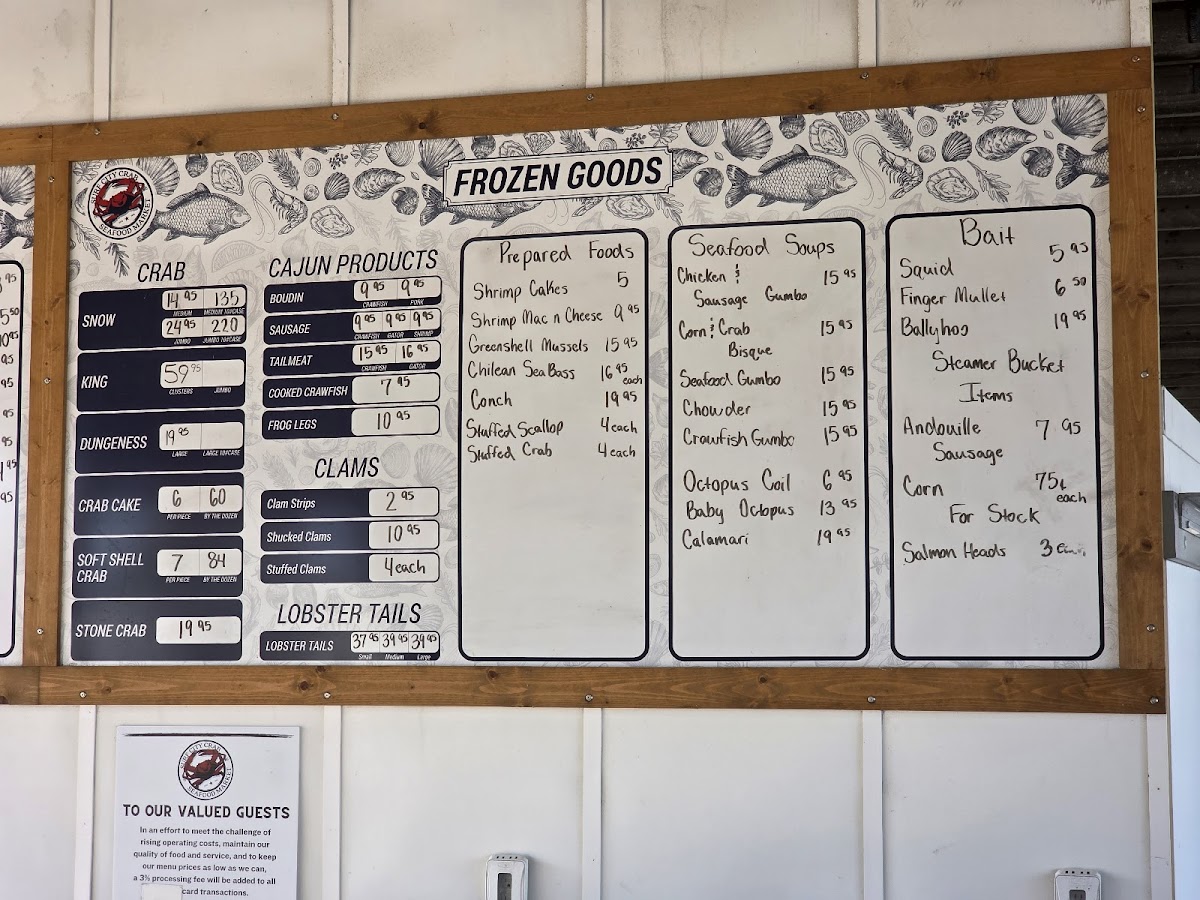 FROZEN GOODS
SURF CITY CRAB
SEAFOOD MARKET
CRAB
SNOW
14 95 135
MEDIUM MEDIUM 10#CASE
24 95 220
JUMBO JUMBO 10#CASE
KING
59 95
CLUSTERS JUMBO
DUNGENESS
19 95
LARGE LARGE 10#CASE
CRAB CAKE
6 60
PER PIECE BY THE DOZEN
SOFT SHELL
CRAB
7 84
PER PIECE BY THE DOZEN
STONE CRAB 19 95
CAJUN PRODUCTS
BOUDIN 9 95 9 95
CRAWFISH PORK
SAUSAGE 9 95 9 95 9 95
CRAWFISH GATOR SHRIMP
TAILMEAT 15 95 16 95
CRAWFISH GATOR
COOKED CRAWFISH 7 95
FROG LEGS 10 95
CLAMS
Clam Strips 2 95
Shucked Clams 10 95
Stuffed Clams 4 each
LOBSTER TAILS
LOBSTER TAILS 37 95 39 95 39 95
Small Medium Large
Prepared Foods
Shrimp Cakes 5
Shrimp Mac n Cheese 9 95
Greenshell Mussels 15 95
Chilean Sea Bass 16 95
each
Conch 19 95
Stuffed Scallop 4 each
Stuffed Crab 4 each
Seafood Soups
Chicken & 15 95
Sausage Gumbo
Corn & Crab 15 95
Bisque
Seafood Gumbo 15 95
Chowder 15 95
Crawfish Gumbo 15 95
Octopus Coil 6 95
Baby Octopus 13 95
Calamari 19 95
Bait
Squid 5 95
Finger Mullet 6 50
Ballyhoo 19 95
Steamer Bucket
Items
Andouille 7 95
Sausage
Corn 75¢
each
For Stock
Salmon Heads 3
SURF CITY CRAB
SEAFOOD MARKET
TO OUR VALUED GUESTS
In an effort to meet the challenge of
rising operating costs, maintain our
quality of food and service, and to keep
our menu prices as low as we can,
a 3% processing fee will be added to all
card transactions.